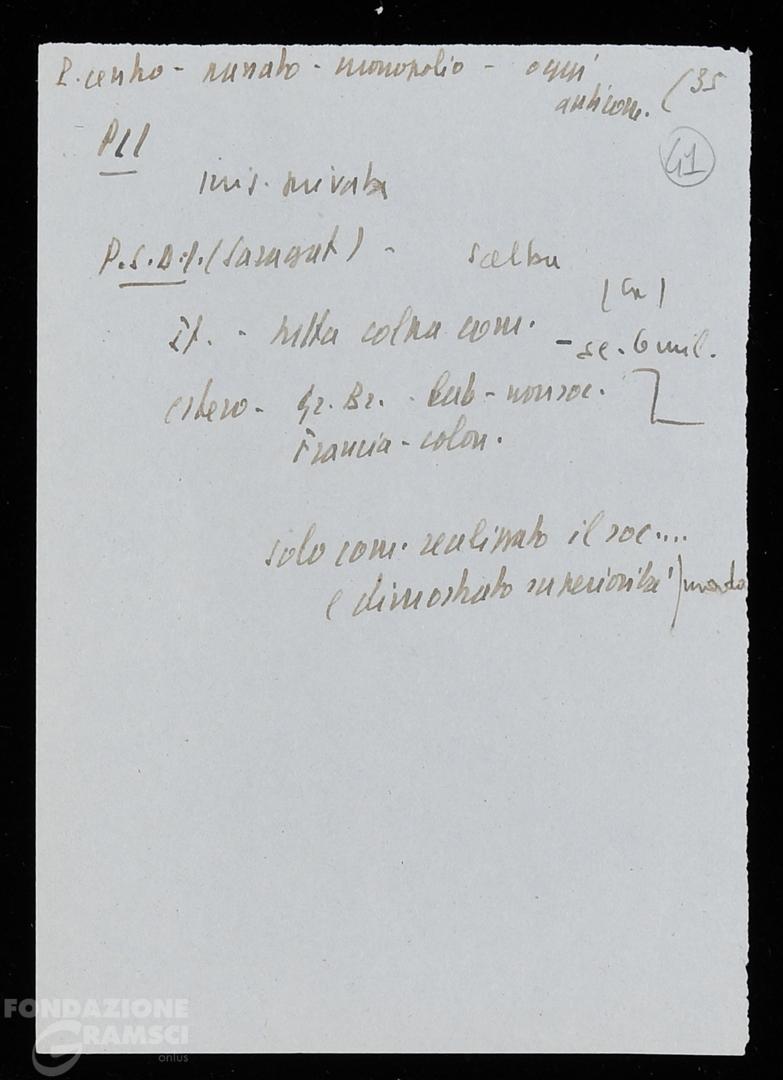 P. centro - passato - monopolio - oggi
anticom. (35
41
PLI
iniz. privata
P.S.D.I. (Saragat) - Scelba
It. - tutta colpa com.
- se. 6 mil.
estero - Gr. Br. - Lab - non soc.
Francia - colon.
solo com. realizzato il soc....
e dimostrato superiorità
FONDAZIONE
GRAMSCI
onlus